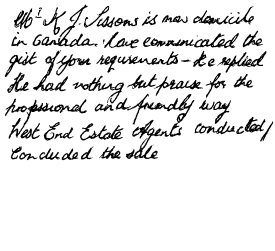 Mr K J. Sissons is now domicile
in Canada. have communicated the
gist of your requirements - He replied
He had nothing but praise for the
professional and friendly way
West End Estate Agents conducted/
concluded the sale